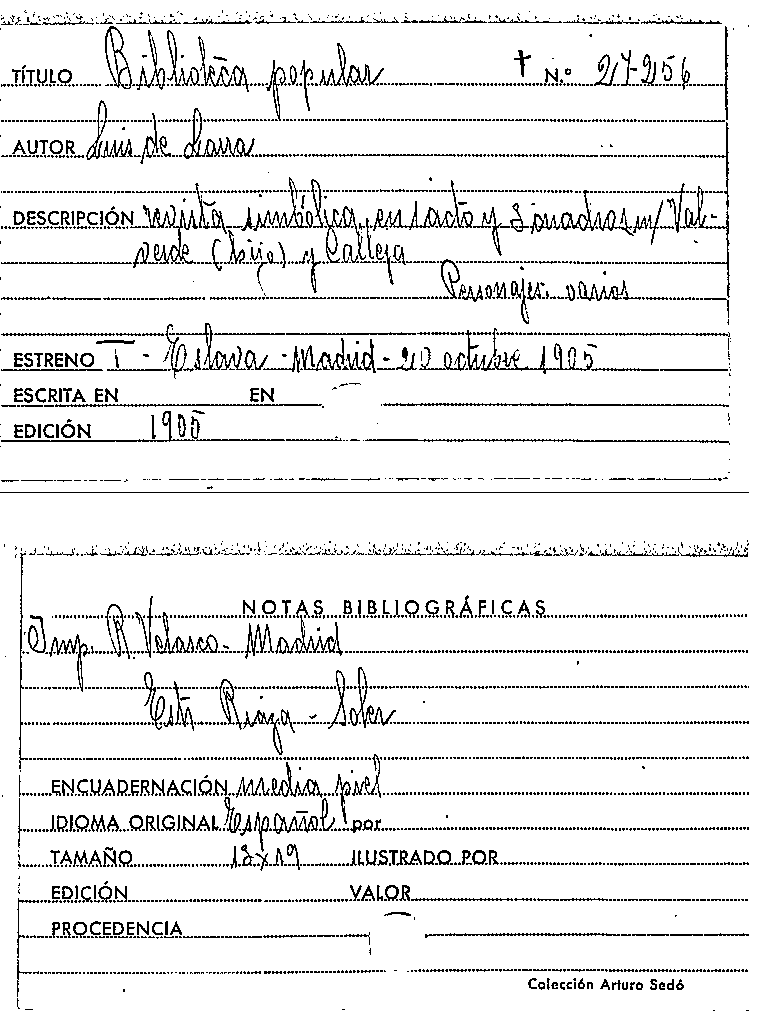 TÍTULO Biblioteca popular † N.º 27-256
AUTOR Luis de Larra
DESCRIPCIÓN revista simbólica, en 1 acto y 3 cuadros m/ Val-
verde (hijo) y Calleja
Personajes: varios
ESTRENO T - Eslava - Madrid - 20 octubre 1905
ESCRITA EN EN
EDICIÓN 1905
NOTAS BIBLIOGRÁFICAS
Imp. R. Velasco - Madrid
Estr Riaza - Soler
ENCUADERNACIÓN media piel
IDIOMA ORIGINAL Español por
TAMAÑO 13x19 ILUSTRADO POR
EDICIÓN VALOR
PROCEDENCIA
Colección Arturo Sedó